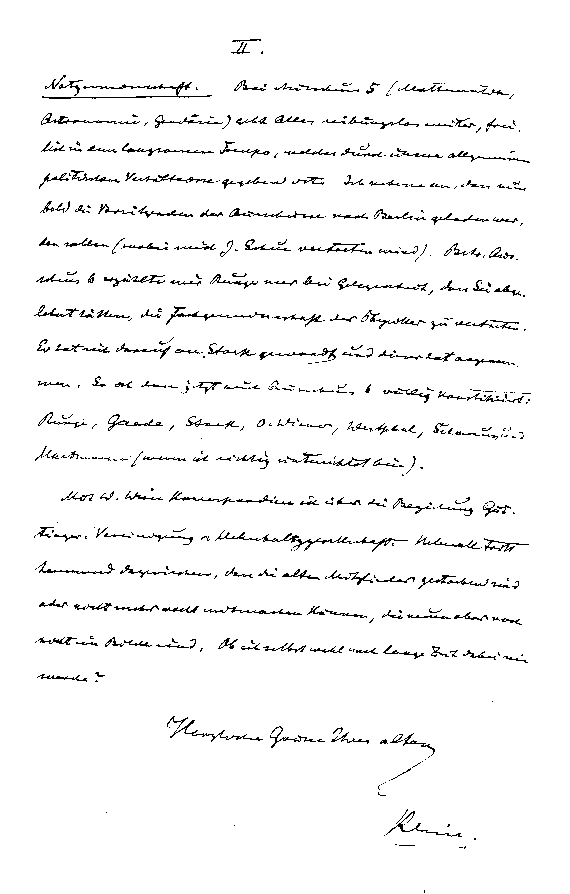 II.
Notgemeinschaft. Bei Ausschuss 5 (Mathematik,
Astronomie, Geodäsie) geht Alles reibungslos weiter, frei-
lich in dem langsamen Tempo, welches durch unsere allgemeinen
politischen Verhältnisse gegeben ist. Ich nehme an, dass nun
bald die Vorsitzenden der Ausschüsse nach Berlin geladen wer-
den sollen (wobei mich J. Schur vertreten wird). Betr. Aus-
schuss 6 erzählte mir Runge nur bei Gelegenheit, dass Sie abge-
lehnt hätten, die Fachgemeinschaft der Physiker zu vertreten.
Er hat sich darauf an Stark gewandt und dieser hat angenom-
men. So ist denn jetzt auch Ausschuss 6 völlig konstituiert:
Runge, Gaede, Stark, O. Wiener, Westphal, und
(wenn ich richtig unterrichtet bin).
Mit W. Wien korrespondiere ich über die Beziehung Göt-
tinger Vereinigung u. Helmholtzgesellschaft. Überall tritt
hemmend dazwischen, dass die alten Mitglieder gestorben sind
oder nicht mehr recht mitmachen können, die neuen aber noch
nicht im Bilde sind. Ob ich selbst wohl noch lange Zeit dabei sein
werde?
Herzliche Grüsse Ihres alten
Klein.